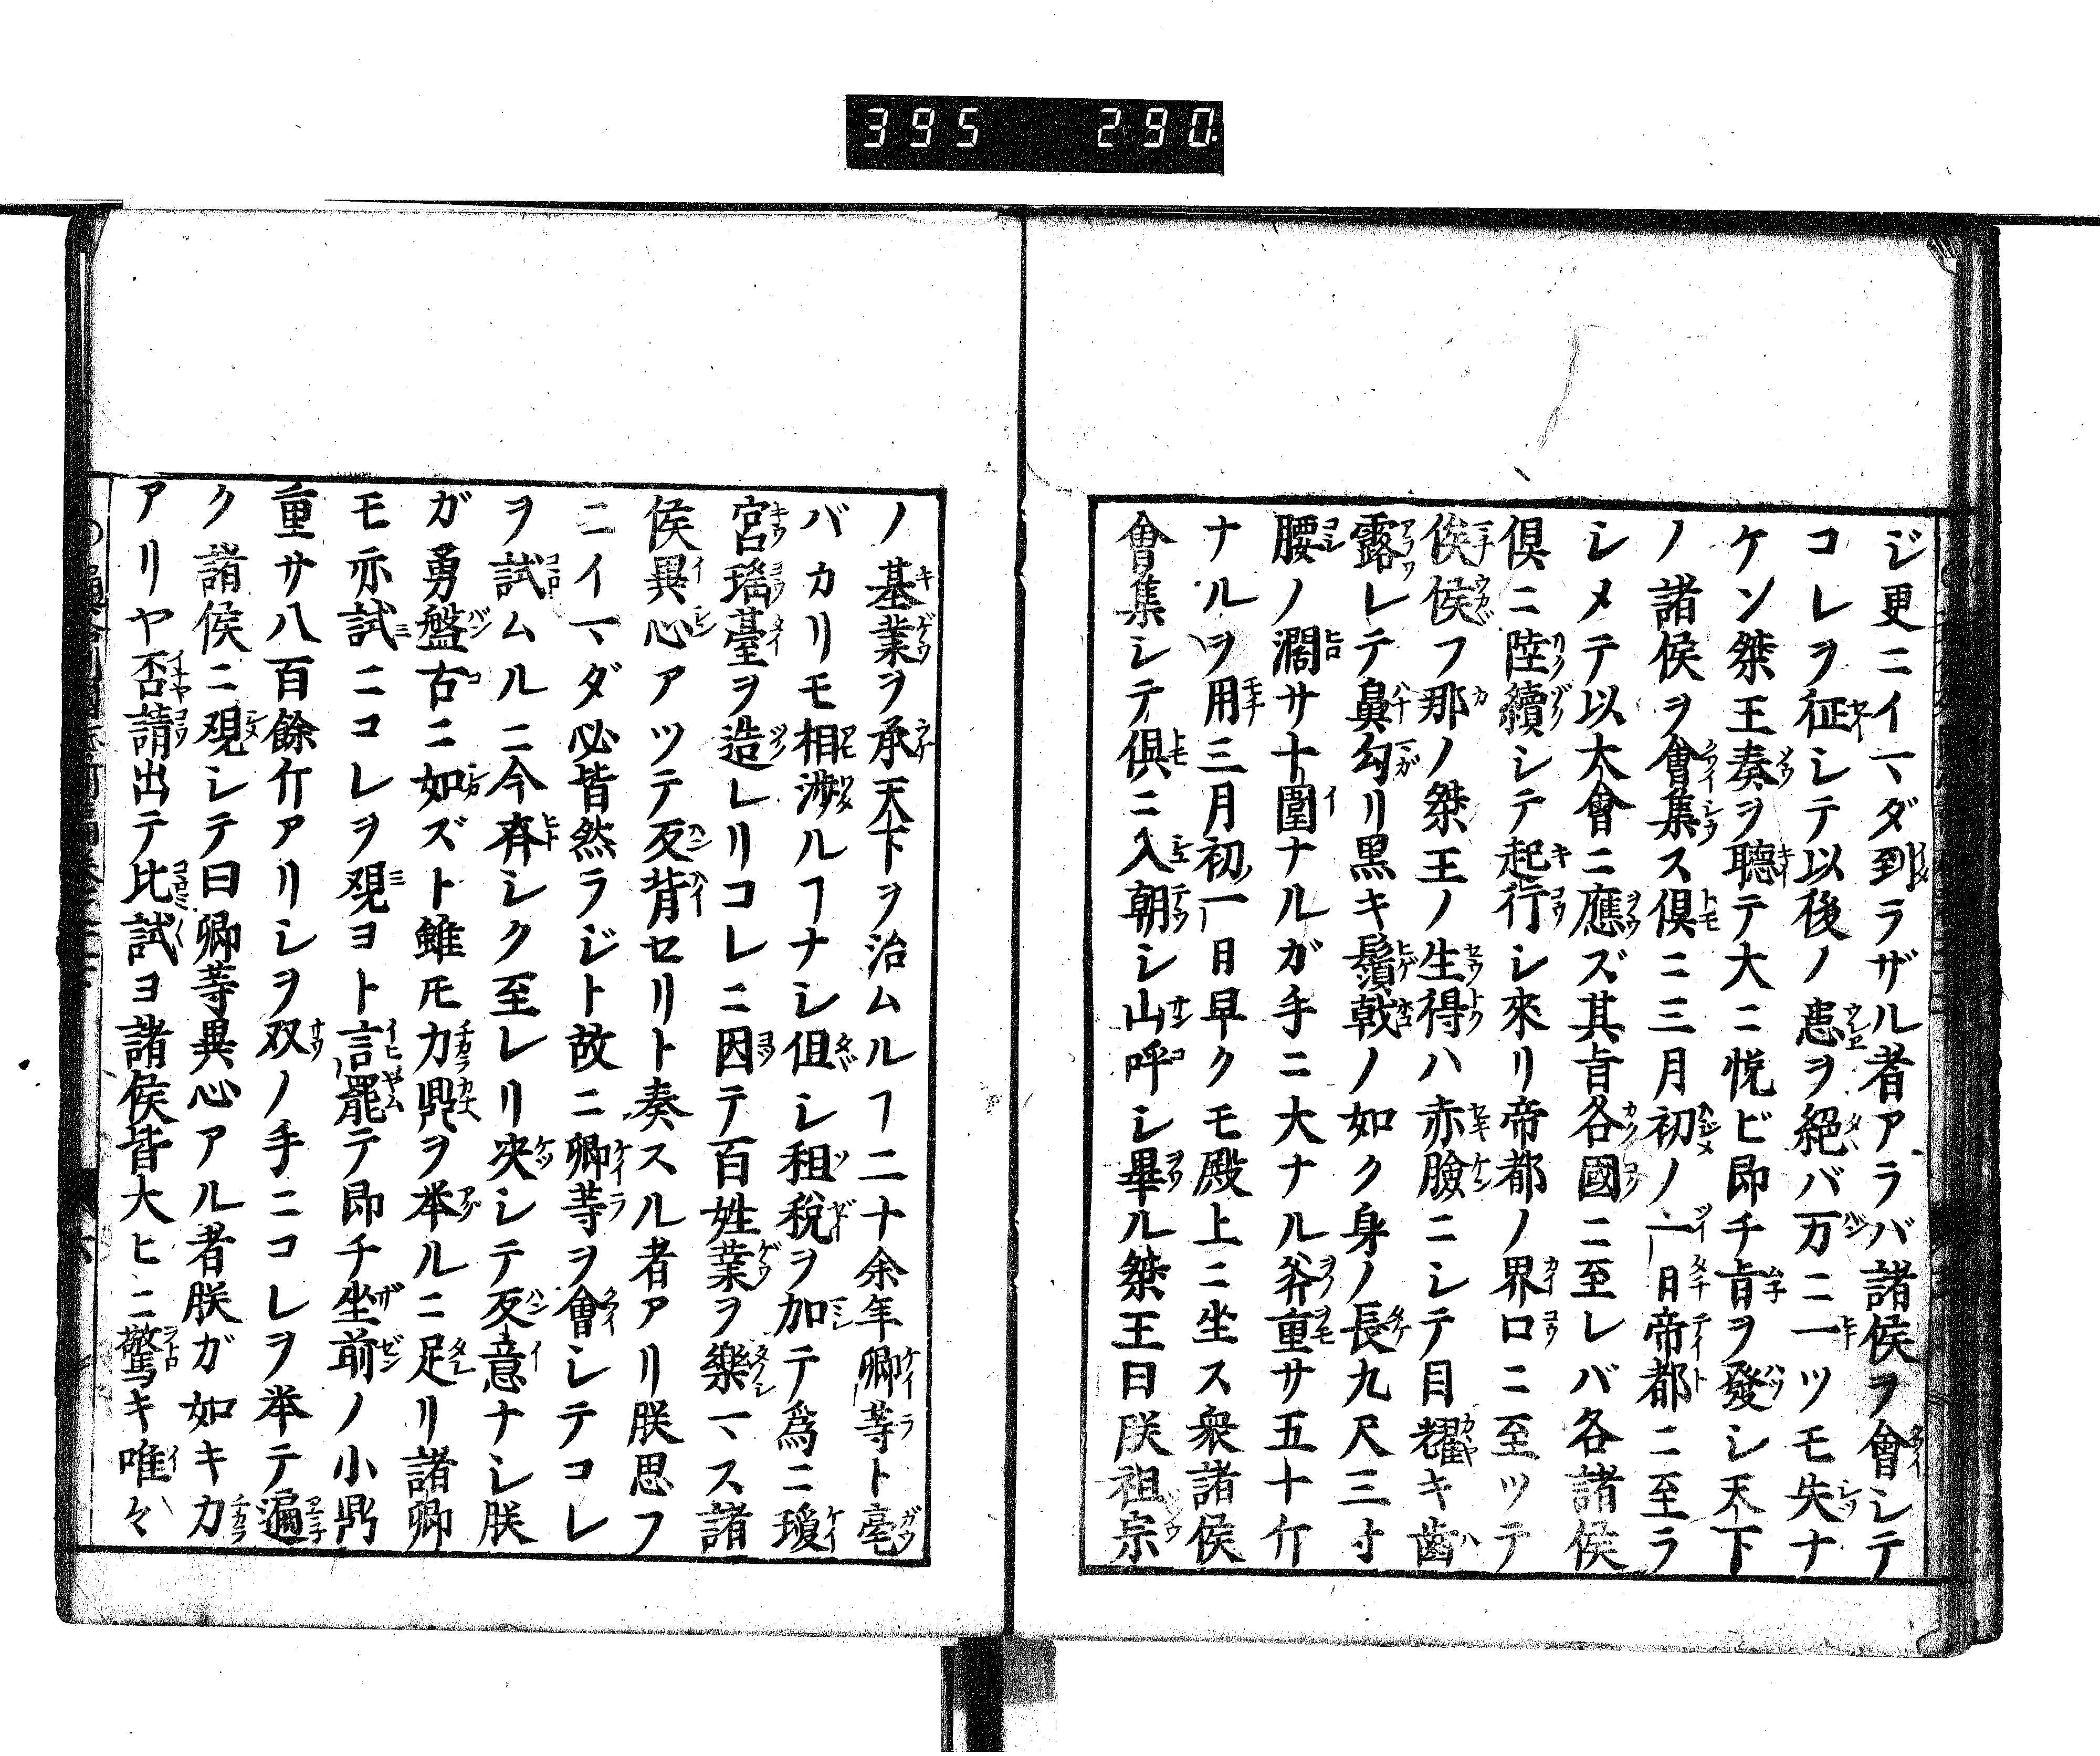 395 290
ジ更ニイマダ到ラザル者アラバ諸侯ヲ會シテ
コレヲ征シテ以後ノ患ヲ絕バ万ニ一ツモ失ナ
ケン桀王奏ヲ聽テ大ニ悦ビ即チ㫖ヲ發シ天下
ノ諸侯ヲ會集ス倶ニ三月初ノ一日帝都ニ至ラ
シメテ以大會ニ應ズ其㫖各國ニ至レバ各諸侯
倶ニ陸續シテ起行シ來リ帝都ノ界口ニ至ツテ
俟候フ那ノ桀王ノ生得ハ赤臉ニシテ目耀キ齒
露レテ鼻勾リ黒キ鬚戟ノ如ク身ノ長九尺三寸
腰ノ濶サ十圍ナルガ手ニ大ナル斧重サ五十斤
ナルヲ用三月初一日早クモ殿上ニ坐ス衆諸侯
會集シテ倶ニ入朝シ山呼シ畢ル桀王曰朕祖宗
ノ基業ヲ承天下ヲ治ムルヿ二十余年卿等ト毫
バカリモ相渉ルヿナシ但シ租稅ヲ加テ爲ニ瓊
宮瑤臺ヲ造レリコレニ因テ百姓業ヲ樂マス諸
侯異心アツテ反背セリト奏スル者アリ朕思フ
ニイマダ必皆然ラジト故ニ卿等ヲ會シテコレ
ヲ試ムルニ今齊シク至レリ决シテ反意ナシ朕
ガ勇盤古ニ如ズト雖𪜈力鼎ヲ举ルニ足リ諸卿
モ亦試ニコレヲ覌ヨト言罷テ即チ坐前ノ小鼎
重サ八百餘斤アリシヲ双ノ手ニコレヲ举テ遍
ク諸侯ニ覌シテ曰卿等異心アル者朕ガ如キ力
アリヤ否請出テ比試ヨ諸侯皆大ヒニ驚キ唯々